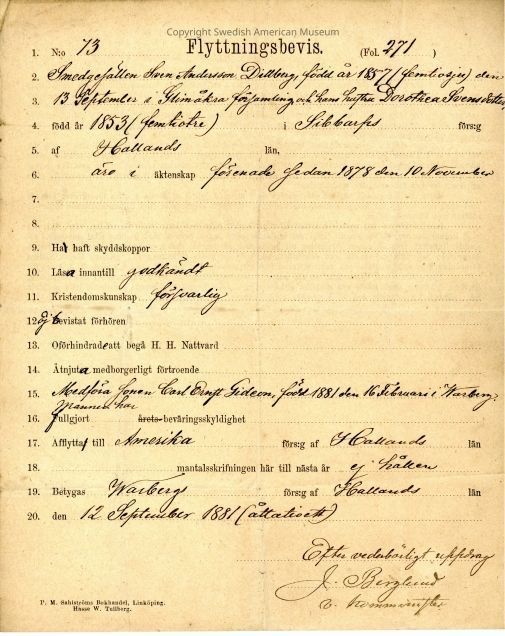 Copyright Swedish American Museum
1. N:o 73 Flyttningsbevis. (Fol. 271 )
2. Smedgesällen Sven Andersson Dillberg, född år 1857 (femtiosju) den
3. 13 September i Glimåkra församling och hans hustru Dorothea Svensdotter,
4. född år 1853 (femtiotre) i Sibbarps förs:g
5. af Hallands län,
6. äro i äktenskap förenade sedan 1878 den 10 November
7.
8.
9. Ha haft skyddskoppor
10. Läsa innantill godkändt
11. Kristendomskunskap försvarlig
12. Ej bevistat förhören
13. Oförhindrade att begå H. H. Nattvard
14. Åtnjuta medborgerligt förtroende
15. Medföra sonen Carl Ernst Gideon, född 1881 den 16 Februari i Warberg.
mannen har
16. fullgjort årets beväringsskyldighet
17. Afflytta till Amerika förs:g af Hallands län
18. mantalsskrifningen här till nästa år ej hållen
19. Betygas Warbergs förs:g af Hallands län
20. den 12 September 1881 (åttatioett)
Efter vederbörligt uppdrag
J. Berglund
v. Komminister
P. M. Sahlströms Bokhandel, Linköping.
Hasse W. Tullberg.